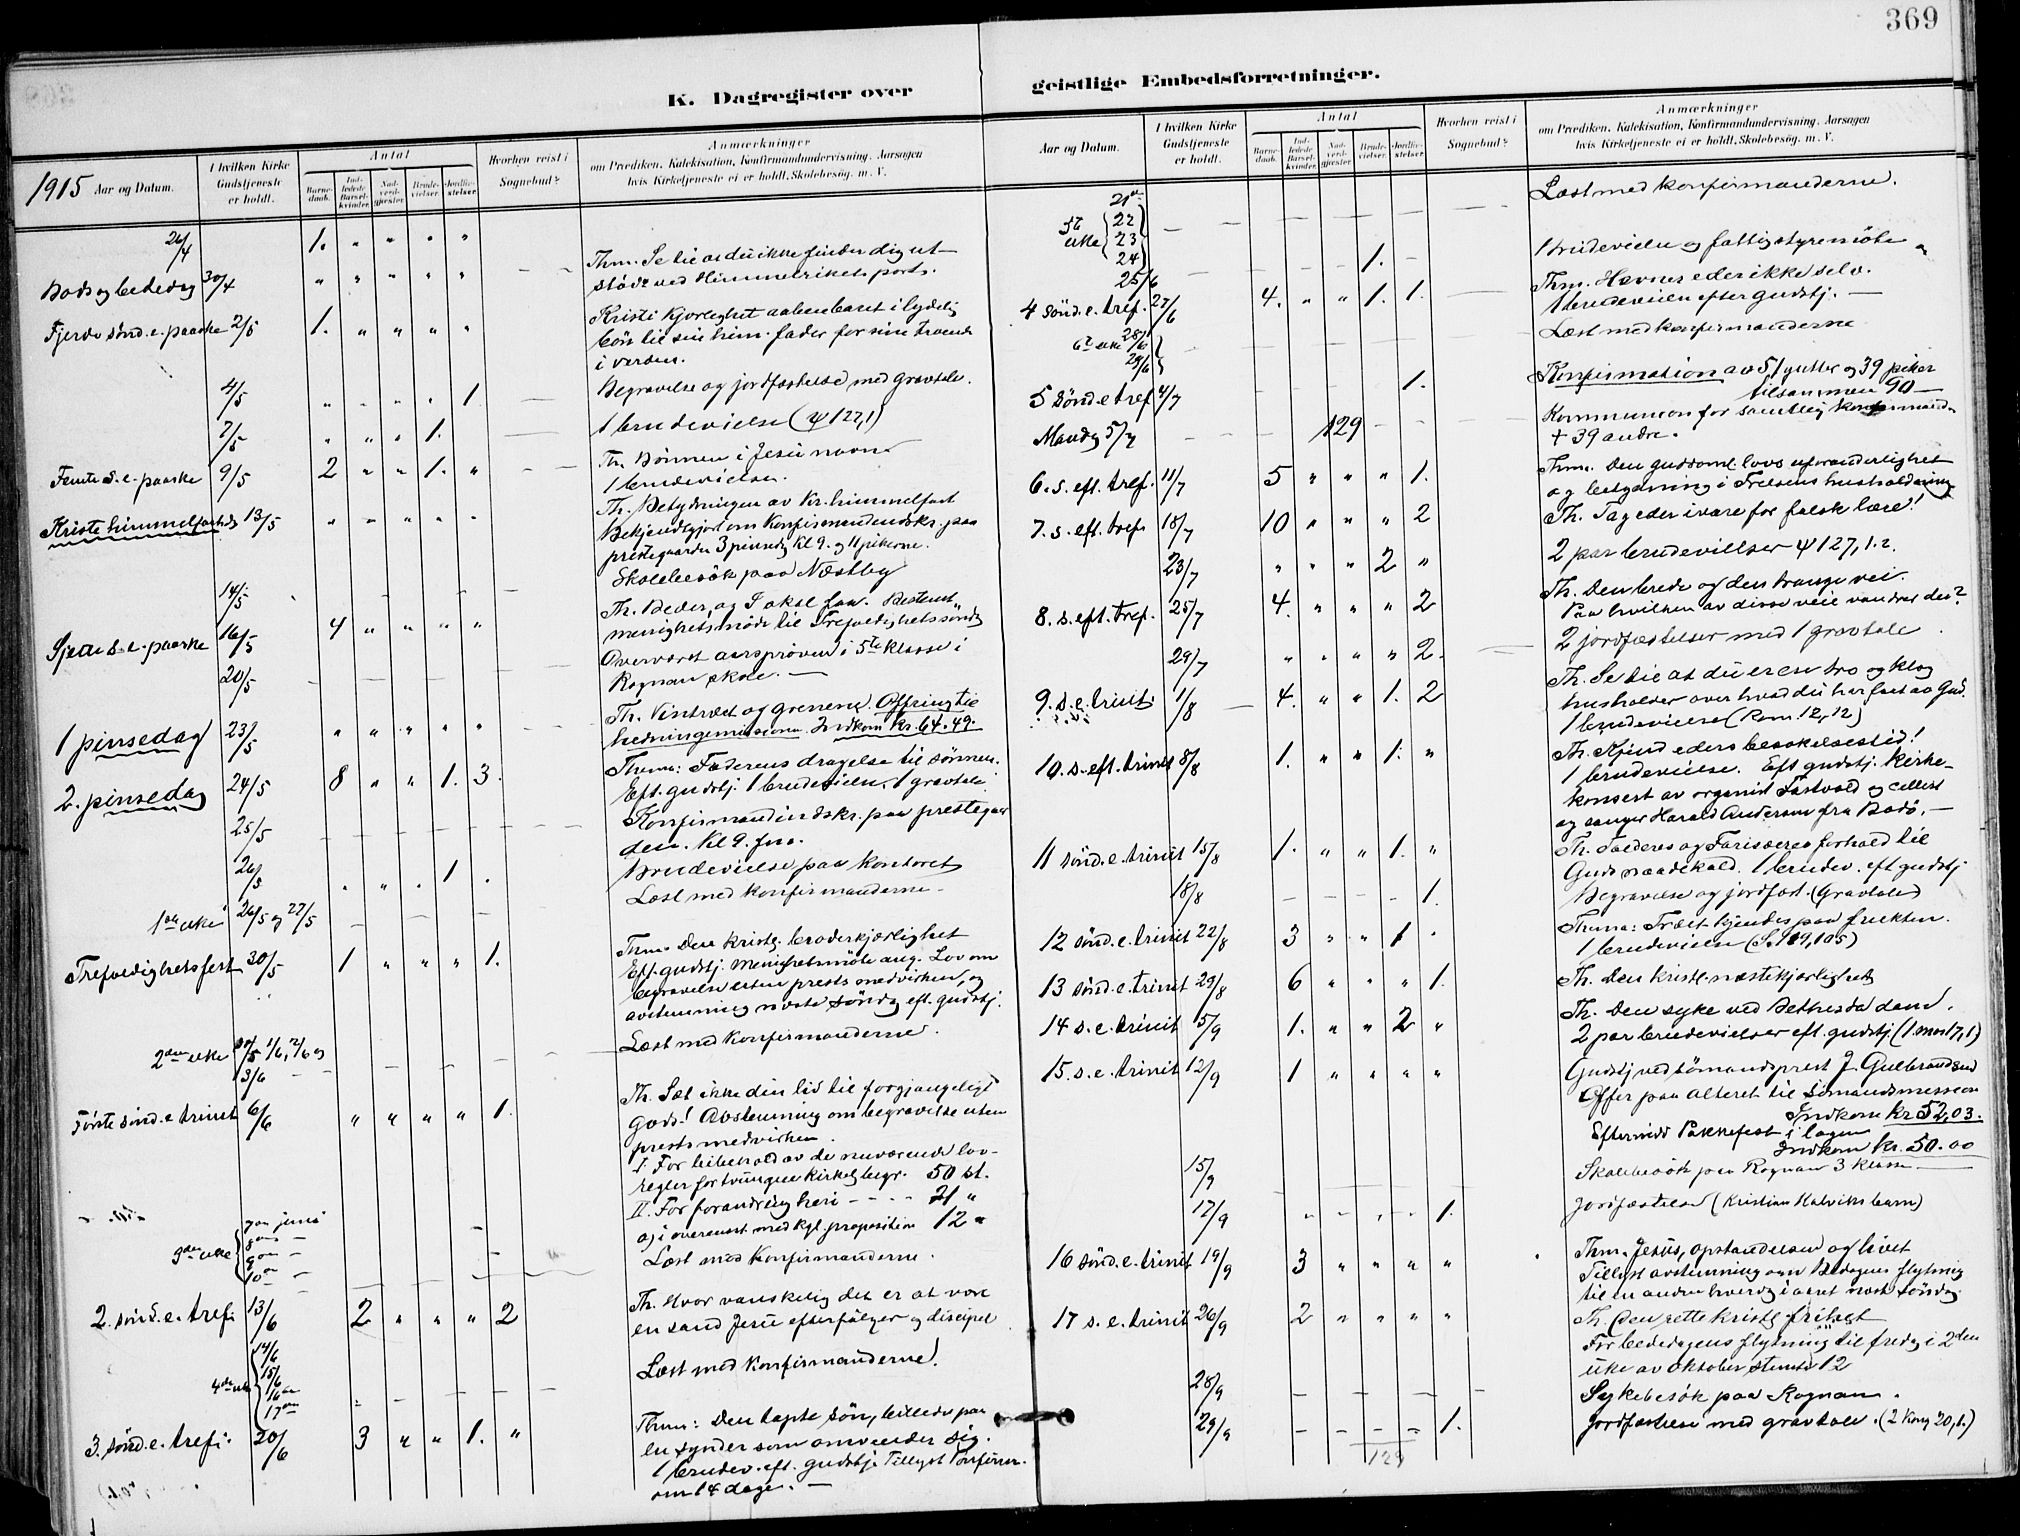 369
K. Dagregister over
1915 Aar og Datum.
I hvilken Kirke Gudstjeneste er holdt.
Antal
Barne-daab.
Ind-ledede Barsel-kvinder.
Nad-verd-gjester.
Brude-vielser.
Jordfæ-stelser.
Hvorhen reist i Sognebud?
Anmærkninger
om Prædiken, Katekisation, Konfirmandundervisning. Aarsagen
hvis Kirketjeneste ei er holdt. Skolebesög. m. V.
26/4 1. " " " "
Bods og bededag 30/4 " " " " " - - Thm. Se til at du ikke finder dig ut-
stödt ved Himmelrikets port.
Fjerde sönd. e. paaske 2/5 1. " " " " Kristi kjærleghet aabenbaret i lydelig
bön til sin him. fader for sine troende
i verden.
4/5 " " " " 1. Begravelse og jordfæstelse med gravtale.
7/5 " " " 1. 1 brudevielse (ψ 127,1)
Femte s. e. paaske 9/5 2 " " 1. " - - Th. Bönnen i Jesu navn
1 brudevielse.
Kristi himmelfartsdag 13/5 " " " " " Th. Betydningen av Kr. himmelfart
Bekjendtgjort om Konfirmandindskr. paa
prestegaarden 3 pinsedag Kl 9. og 11 pikerne.
14/5 Skolebesök paa Næstby
Sjette s. e. paaske 16/5 4 " " " " Th. Beder, og I skal faa. Bestemt
menighetsmöde til Trefoldighetssöndag
20/5 Overværet aarspröven i 5te klasse i
Rognan skole. -
1 pinsedag 23/5 " " " " " Th. Vintræet og grenene. Offring til
hedningemissionen Indkom kr. 64.49.
2. pinsedag 24/5 8 " " 1. 3. Thema: Faderens dragelse til sönnen.
Eft. gudstj. 1 brudevielse, 1 gravtale
25/5 Konfirmandindskr. paa prestegaar
den. Kl 9. fm.
26/5 " " " 1 " Brudevielse paa kontoret
1ste uke 26/5 og 27/5 Læst med konfirmanderne -
Trefoldighetsfest 30/5 1 " " " 1. Thm. Den kristelg. broderkjærlighet
Eft. gudstj. menighetsmöte ang. Lov om
begravelse uten prests medvirken, og
avstemning næste söndag eft. gudstj.
2den uke 30/5 1/6, 2/6 og 3/6 Læst med konfirmanderne.
Förste sönd. e trinit 6/6 " " " " 1. Th. Sæt ikke din lid til forgjængeligt
gods! Avstemning om begravelse uten
prests medvirken.
I. For bibehold av de nuværende lov-
regler for tvungen kirkelig begr. 50 st.
II. For forandring heri - - - - 21 "
og i overenst. med kgl. proposition 12 "
3die uke 7de juni 8de - 9de - 10de - Læst med konfirmanderne.
2. sönd. e. tref. 13/6 2 " " " 2 Th. Hvor vanskelig det er at være
en sand Jesu efterfölger og discipel
4de uke 14/6 15/6 16de 17de Læst med konfirmanderne.
3. sönd. e. tref. 20/6 3 " " 1. " Thm: Den tapte sön, billede paa
en synder som omvender sig.
1 brudev. eft. gudstj. Tillyst konfirm.
om 14 dage. -
geistlige Embedsforretninger.
Aar og Datum.
I hvilken Kirke Gudstjeneste er holdt.
Antal
Barne-daab.
Ind-ledede Barsel-kvinder.
Nad-verd-gjester.
Brude-vielser.
Jordfæ-stelser.
Hvorhen reist i Sognebud?
Anmærkninger
om Prædiken, Katekisation, Konfirmandundervisning. Aarsagen
hvis Kirketjeneste ei er holdt. Skolebesög. m. V.
5te uke 21de 22 23 24 Læst med konfirmanderne.
25/6 1. 1 brudevielse og fattigstyremöte
4 sönd. e. tref. 27/6 4. " " 1. 1. Thm. Hævner eder ikke selv.
1 brudevielse efter gudstj. -
6te uke 28/6 29/6 Læst med konfirmanderne
5 sönd. e tref 4/7 1. Konfirmation av 51 gutter og 39 piker
tilsammen 90 -
Mandag 5/7 129 Kommunion for samtlig konfirmand.
+ 39 andre.
6. s. eft. tref. 11/7 5 " " " 1. Thm. Den guddoml. lovs uforanderlighet
og betydning i Frelsens husholdning
7. s. eft. tref. 18/7 10 " " " 2 Th. Tag eder i vare for falsk lære!
23/7 " " " 2 " 2 par brudevielser ψ 127,1.2.
8. s. eft. tref. 25/7 4. " " " 2 Th. Den brede og den trange vei.
Paa hvilken av disse veie vandrer du?
29/7 " " " " 2. 2 jordfæstelser med 1 gravtale
9. s. e. trinit. 1/8 4. " " 1. 2 Th. Se til at du er en tro og klog
husholder over hvad du har faat av Gud.
1 brudevielse (Rom. 12,12)
10. s. eft. trinit 8/8 1. " " 1. " Th. Kjend eders besökelsestid!
1 brudevielse. Eft gudstj. Kirke-
konsert av organist Fastvold og cellist
og sanger Harald Andersen fra Bodö. -
11 sönd. e. trinit 15/8 1. " " 1. " Th. Tolderes og Farisæeres forhold til
Guds naadekald. 1 brudev. eft gudstj
18/8 1. Begravelse og jordfæst. (Gravtale)
12 sönd. e. trinit 22/8 3 " " 1 " Thema: Træet kjendes paa frukten.
1 brudevielse (S. 119,105)
13 sönd. e. trinit 29/8 6 " " " 1. Th. Den kristl. næstekjærlighet
14 s. e. trinit 5/9 1. " " 2 " Th. Den syke ved Bethesda dam.
2 par brudevielser eft. gudstj. (1 mos 17,1)
15. s. e. trinit 12/9 1 " " " " Gudstj ved sömandsprest J. Gulbrandsen
Offer paa alteret til Sömandsmission
Indkom kr 52,03.
Eftermidd Pakkefest i lagen
Indkom kr. 50.00
15/9 Skolebesök paa Rognan 3 klasse
17/9 " " " " 1. Jordfæstelse (Kristian Halviks barn)
16 sönd. e. trinit 19/9 3 " " " " Thm. Jesus, opstandelsen og livet
Tillyst avstemning om Bededagens flytning
til en anden hverdag i aaret næste söndag.
17 s. e. trinit 26/9 2 " " " " Th. Den rette kristelige frihet
For bededagens flytning til fredag i 2den
uke av oktober stemte 12
28/9 Sykebesök paa Rognan.
29/9 1. Jordfæstelse med gravtale. (2 Kong 20,1.)
129